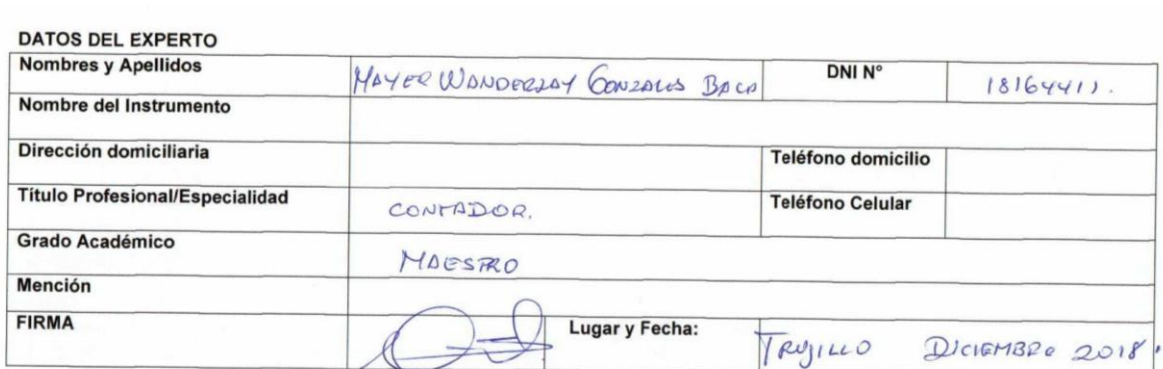 DATOS DEL EXPERTO
Nombres y Apellidos MAYER WANDERLAY GONZALES BACA DNI N° 18164411.
Nombre del Instrumento
Dirección domiciliaria Teléfono domicilio
Título Profesional/Especialidad CONTADOR. Teléfono Celular
Grado Académico MAESTRO
Mención
FIRMA Lugar y Fecha: TRUJILLO DICIEMBRE 2018.